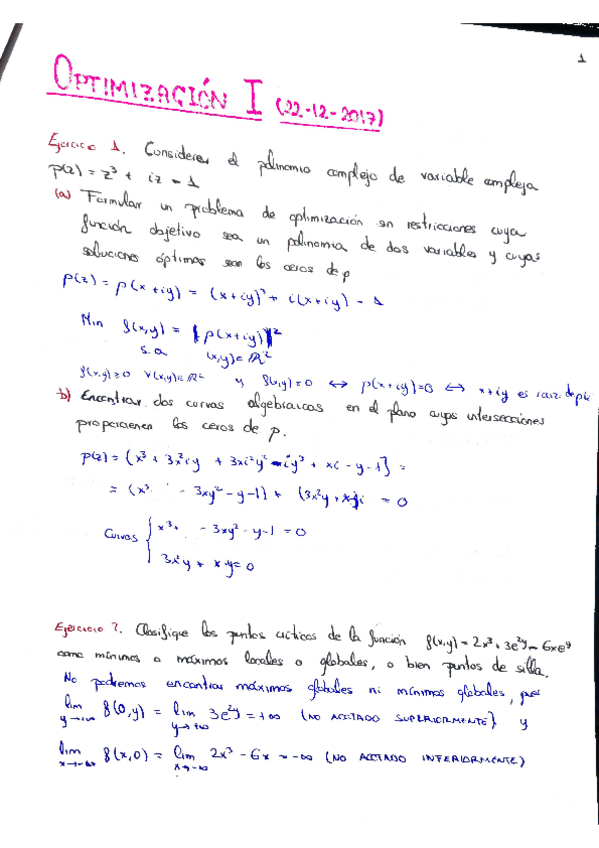 1
OPTIMIZACIÓN I (22-12-2017)
Ejercicio 1. Considere el polinomio complejo de variable compleja
p(z) = z³ + iz - 1
(a) Formular un problema de optimización sin restricciones cuya
función objetivo sea un polinomio de dos variables y cuyas
soluciones óptimas sean los ceros de p
p(z) = p(x+iy) = (x+iy)³ + i(x+iy) - 1
Min f(x,y) = |p(x+iy)|²
s.a (x,y)∈ℝ²
f(x,y)≥0 ∀(x,y)∈ℝ² y f(x,y)=0 ↔ p(x+iy)=0 ↔ x+iy es raiz de p
b) Encontrar dos curvas algebraicas en el plano cuyas intersecciones
proporcionen los ceros de p.
p(z) = (x³ + 3x²iy + 3xi²y² - iy³ + xi - y - 1) =
= (x³ - 3xy² - y - 1) + (3x²y + x = 0
Curvas { x³ - 3xy² - y - 1 = 0
3x²y + x = 0
Ejercicio 2. Clasifique los puntos críticos de la función f(x,y) = 2x³ + 3e²ʸ - 6xeʸ
como mínimos o máximos locales o globales, o bien puntos de silla.
No podremos encontrar máximos globales ni mínimos globales, pues
lim y→+∞ f(0,y) = lim y→+∞ 3e²ʸ = +∞ (NO ACOTADO SUPERIORMENTE) y
lim x→-∞ f(x,0) = lim x→-∞ 2x³ - 6x = -∞ (NO ACOTADO INFERIORMENTE)